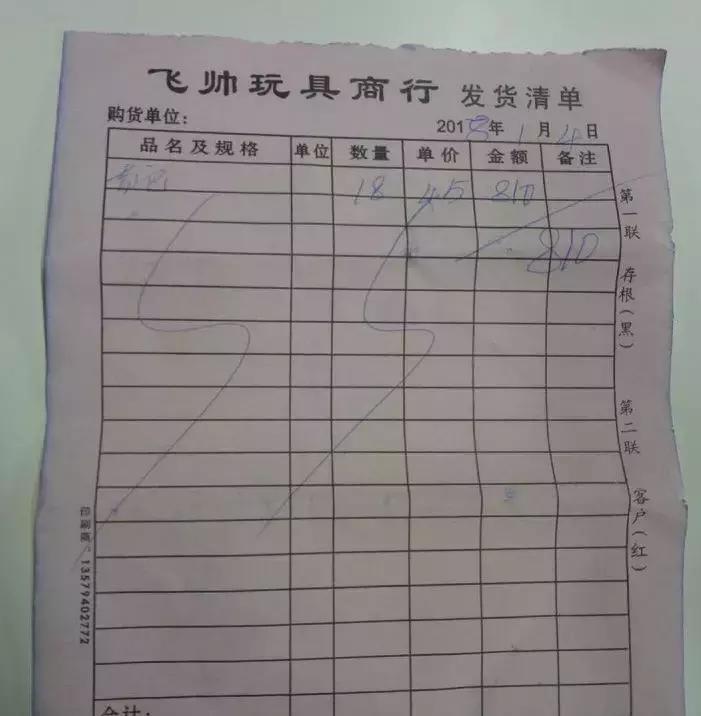 飞帅玩具商行 发货清单
购货单位： 2018年1月4日
品名及规格 单位 数量 单价 金额 备注
18 45 810
810
第一联 存根（黑） 第二联 客户（红）
13579402772
合计：